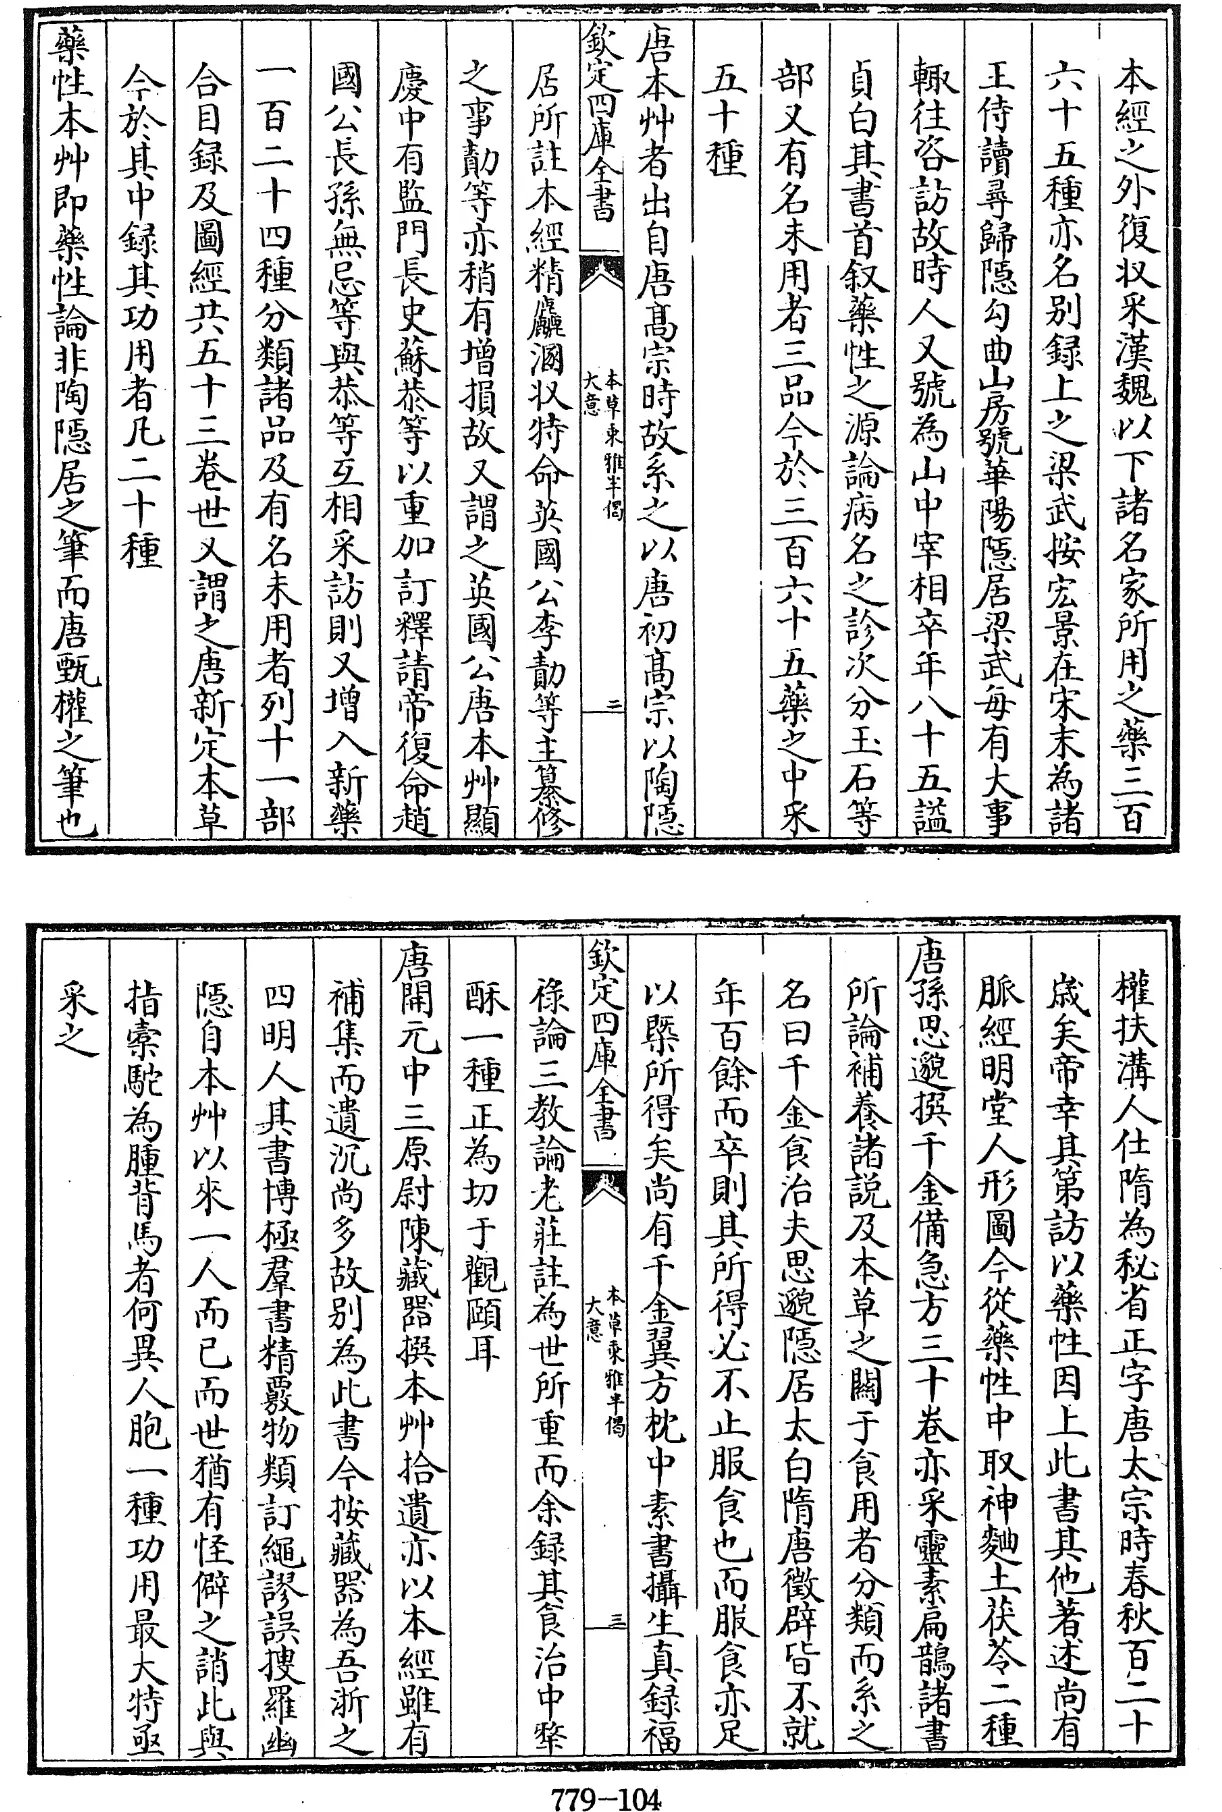 本經之外復収采漢魏以下諸名家所用之藥三百
六十五種亦名别録上之梁武按宏景在宋末為諸
王侍讀尋歸隱勾曲山房號華陽隱居梁武每有大事
輙往咨訪故時人又號為山中宰相卒年八十五謚
貞白其書首叙藥性之源論病名之診次分玉石等
部又有名未用者三品今於三百六十五藥之中采
五十種
唐本艸者出自唐髙宗時故系之以唐初髙宗以陶隱
欽定四庫全書
本草乘雅半偈
大意
二
居所註本經精麤溷収特命英國公李勣等主纂修
之事勣等亦稍有增損故又謂之英國公唐本艸顯
慶中有監門長史蘇恭等以重加訂釋請帝復命趙
國公長孫無忌等與恭等互相采訪則又增入新藥
一百二十四種分類諸品及有名未用者列十一部
合目録及圖經共五十三卷世又謂之唐新定本草
今於其中録其功用者凡二十種
藥性本艸即藥性論非陶隱居之筆而唐甄權之筆也
權扶溝人仕隋為秘省正字唐太宗時春秋百二十
歳矣帝幸其第訪以藥性因上此書其他著述尚有
脈經明堂人形圖今從藥性中取神麯土茯苓二種
唐孫思邈撰千金備急方三十卷亦采靈素扁鵲諸書
所論補養諸説及本草之闗于食用者分類而系之
名曰千金食治夫思邈隱居太白隋唐徵辟皆不就
年百餘而卒則其所得必不止服食也而服食亦足
以槩所得矣尚有千金翼方枕中素書攝生真録福
欽定四庫全書
本草乘雅半偈
大意
三
祿論三教論老莊註為世所重而余録其食治中犂
酥一種正為切于觀頤耳
唐開元中三原尉陳藏器撰本艸拾遺亦以本經雖有
補集而遺沉尚多故别為此書今按藏器為吾浙之
四明人其書博極羣書精覈物類訂繩謬誤搜羅幽
隱自本艸以來一人而已而世猶有怪僻之誚此與
指槖駝為腫背馬者何異人胞一種功用最大特亟
采之
779-104